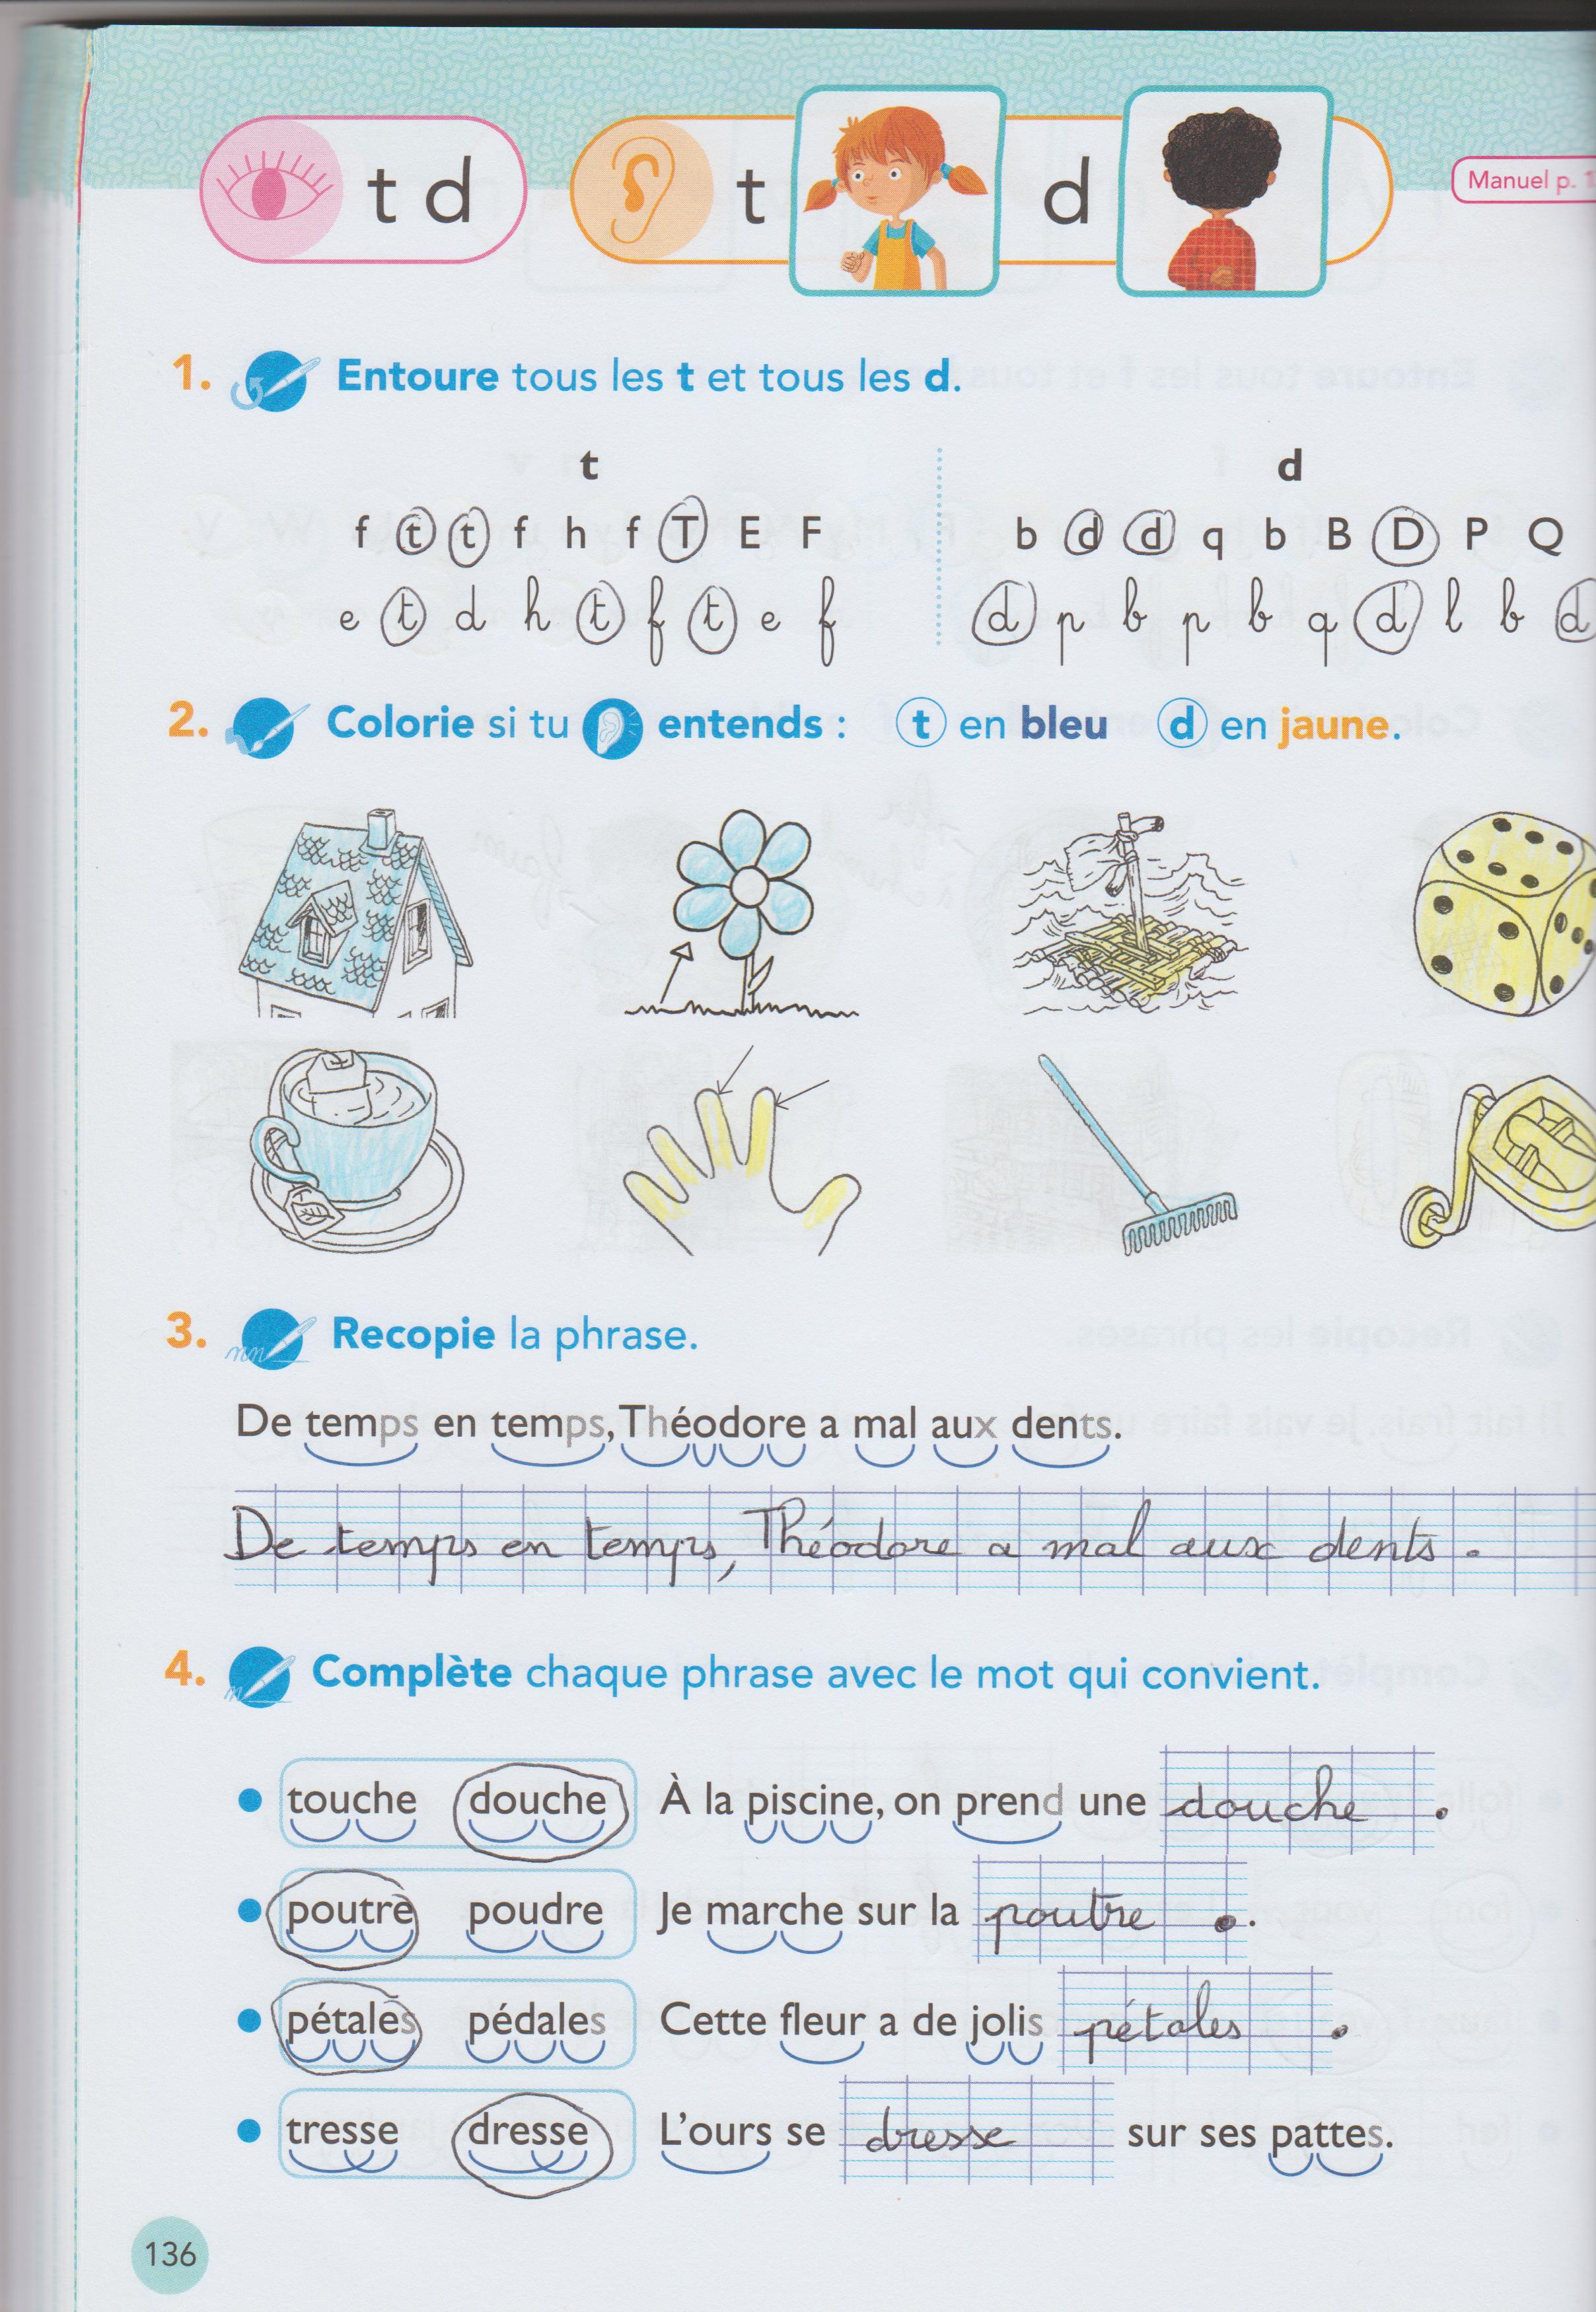 t d t d
Manuel p. 1
1. Entoure tous les t et tous les d.
t
f t t f h f T E F
e t d h t f t e f
d
b d d q b B D P Q
d p b p b q d l b d
2. Colorie si tu entends : t en bleu d en jaune.
3. Recopie la phrase.
De temps en temps, Théodore a mal aux dents.
De temps en temps, Théodore a mal aux dents.
4. Complète chaque phrase avec le mot qui convient.
touche douche À la piscine, on prend une douche.
poutre poudre Je marche sur la poutre .
pétales pédales Cette fleur a de jolis pétales .
tresse dresse L'ours se dresse sur ses pattes.
136